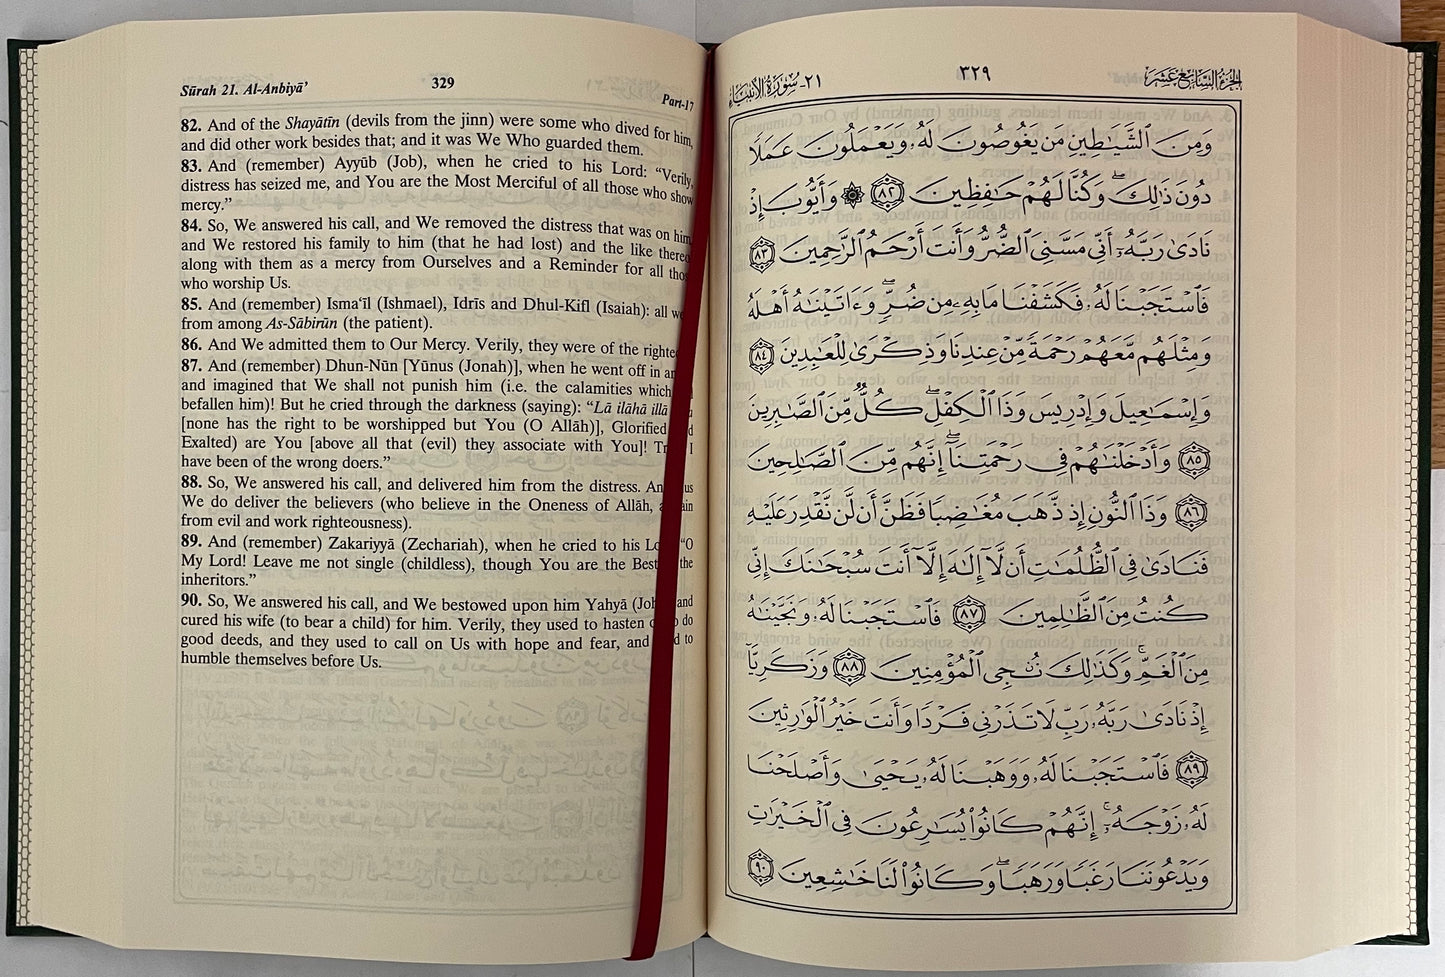 Sūrah 21. Al-Anbiyā’
329
Part-17
82. And of the Shayātīn (devils from the jinn) were some who dived for him,
and did other work besides that; and it was We Who guarded them.
83. And (remember) Ayyūb (Job), when he cried to his Lord: “Verily,
distress has seized me, and You are the Most Merciful of all those who show
mercy.”
84. So, We answered his call, and We removed the distress that was on him,
and We restored his family to him (that he had lost) and the like
along with them as a mercy from Ourselves and a Reminder for all
who worship Us.
85. And (remember) Isma‘īl (Ishmael), Idrīs and Dhul-Kifl (Isaiah): all
from among As-Sābirūn (the patient).
86. And We admitted them to Our Mercy. Verily, they were of the
87. And (remember) Dhun-Nūn [Yūnus (Jonah)], when he went off in
and imagined that We shall not punish him (i.e. the calamities which
befallen him)! But he cried through the darkness (saying): “Lā ilāhā illā
[none has the right to be worshipped but You (O Allāh)], Glorified
Exalted) are You [above all that (evil) they associate with You]! I
have been of the wrong doers.”
88. So, We answered his call, and delivered him from the distress.
We do deliver the believers (who believe in the Oneness of Allāh,
from evil and work righteousness).
89. And (remember) Zakariyyā (Zechariah), when he cried to his “O
My Lord! Leave me not single (childless), though You are the Best the
inheritors.”
90. So, We answered his call, and We bestowed upon him Yahyā and
cured his wife (to bear a child) for him. Verily, they used to hasten do
good deeds, and they used to call on Us with hope and fear, and to
humble themselves before Us.
الجزء السابع عشر
٣٢٩
٢١- سورة الأنبياء
وَمِنَ ٱلشَّيَـٰطِينِ مَن يَغُوصُونَ لَهُۥ وَيَعْمَلُونَ عَمَلًا
دُونَ ذَٰلِكَ ۖ وَكُنَّا لَهُمْ حَـٰفِظِينَ ٨٢ ۞ وَأَيُّوبَ إِذْ
نَادَىٰ رَبَّهُۥٓ أَنِّى مَسَّنِىَ ٱلضُّرُّ وَأَنتَ أَرْحَمُ ٱلرَّٰحِمِينَ ٨٣
فَٱسْتَجَبْنَا لَهُۥ فَكَشَفْنَا مَا بِهِۦ مِن ضُرٍّ ۖ وَءَاتَيْنَـٰهُ أَهْلَهُۥ
وَمِثْلَهُم مَّعَهُمْ رَحْمَةً مِّنْ عِندِنَا وَذِكْرَىٰ لِلْعَـٰبِدِينَ ٨٤
وَإِسْمَـٰعِيلَ وَإِدْرِيسَ وَذَا ٱلْكِفْلِ ۖ كُلٌّ مِّنَ ٱلصَّـٰبِرِينَ
٨٥ وَأَدْخَلْنَـٰهُمْ فِى رَحْمَتِنَآ ۖ إِنَّهُم مِّنَ ٱلصَّـٰلِحِينَ
٨٦ وَذَا ٱلنُّونِ إِذ ذَّهَبَ مُغَـٰضِبًا فَظَنَّ أَن لَّن نَّقْدِرَ عَلَيْهِ
فَنَادَىٰ فِى ٱلظُّلُمَـٰتِ أَن لَّآ إِلَـٰهَ إِلَّآ أَنتَ سُبْحَـٰنَكَ إِنِّى
كُنتُ مِنَ ٱلظَّـٰلِمِينَ ٨٧ فَٱسْتَجَبْنَا لَهُۥ وَنَجَّيْنَـٰهُ
مِنَ ٱلْغَمِّ ۚ وَكَذَٰلِكَ نُـۨجِى ٱلْمُؤْمِنِينَ ٨٨ وَزَكَرِيَّآ
إِذْ نَادَىٰ رَبَّهُۥ رَبِّ لَا تَذَرْنِى فَرْدًا وَأَنتَ خَيْرُ ٱلْوَٰرِثِينَ
٨٩ فَٱسْتَجَبْنَا لَهُۥ وَوَهَبْنَا لَهُۥ يَحْيَىٰ وَأَصْلَحْنَا
لَهُۥ زَوْجَهُۥٓ ۚ إِنَّهُمْ كَانُوا۟ يُسَـٰرِعُونَ فِى ٱلْخَيْرَٰتِ
وَيَدْعُونَنَا رَغَبًا وَرَهَبًا ۖ وَكَانُوا۟ لَنَا خَـٰشِعِينَ ٩٠